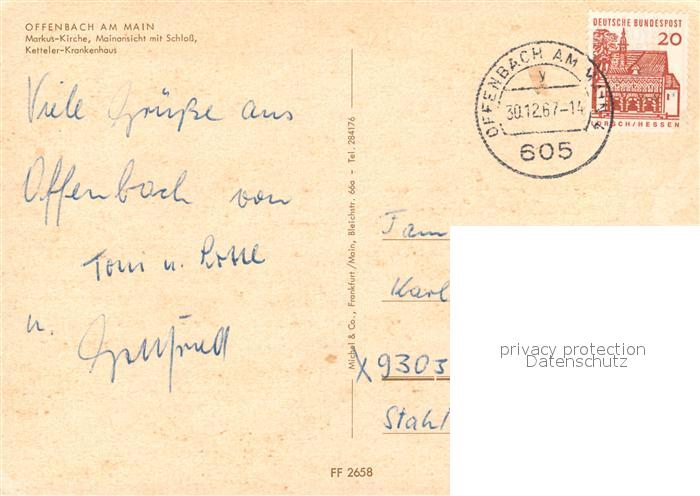 OFFENBACH AM MAIN
Markus-Kirche, Mainansicht mit Schloß,
Ketteler-Krankenhaus
Viele Grüße aus
Offenbach von
Toni u. Lotte
u.
Michel & Co., Frankfurt/Main, Bleichstr. 66a - Tel. 284176
FF 2658
DEUTSCHE BUNDESPOST
20
LORSCH/HESSEN
OFFENBACH AM MAIN 4
y
30.12.67-14
605
Fam
Karl
x9303
Stahl
privacy protection
Datenschutz